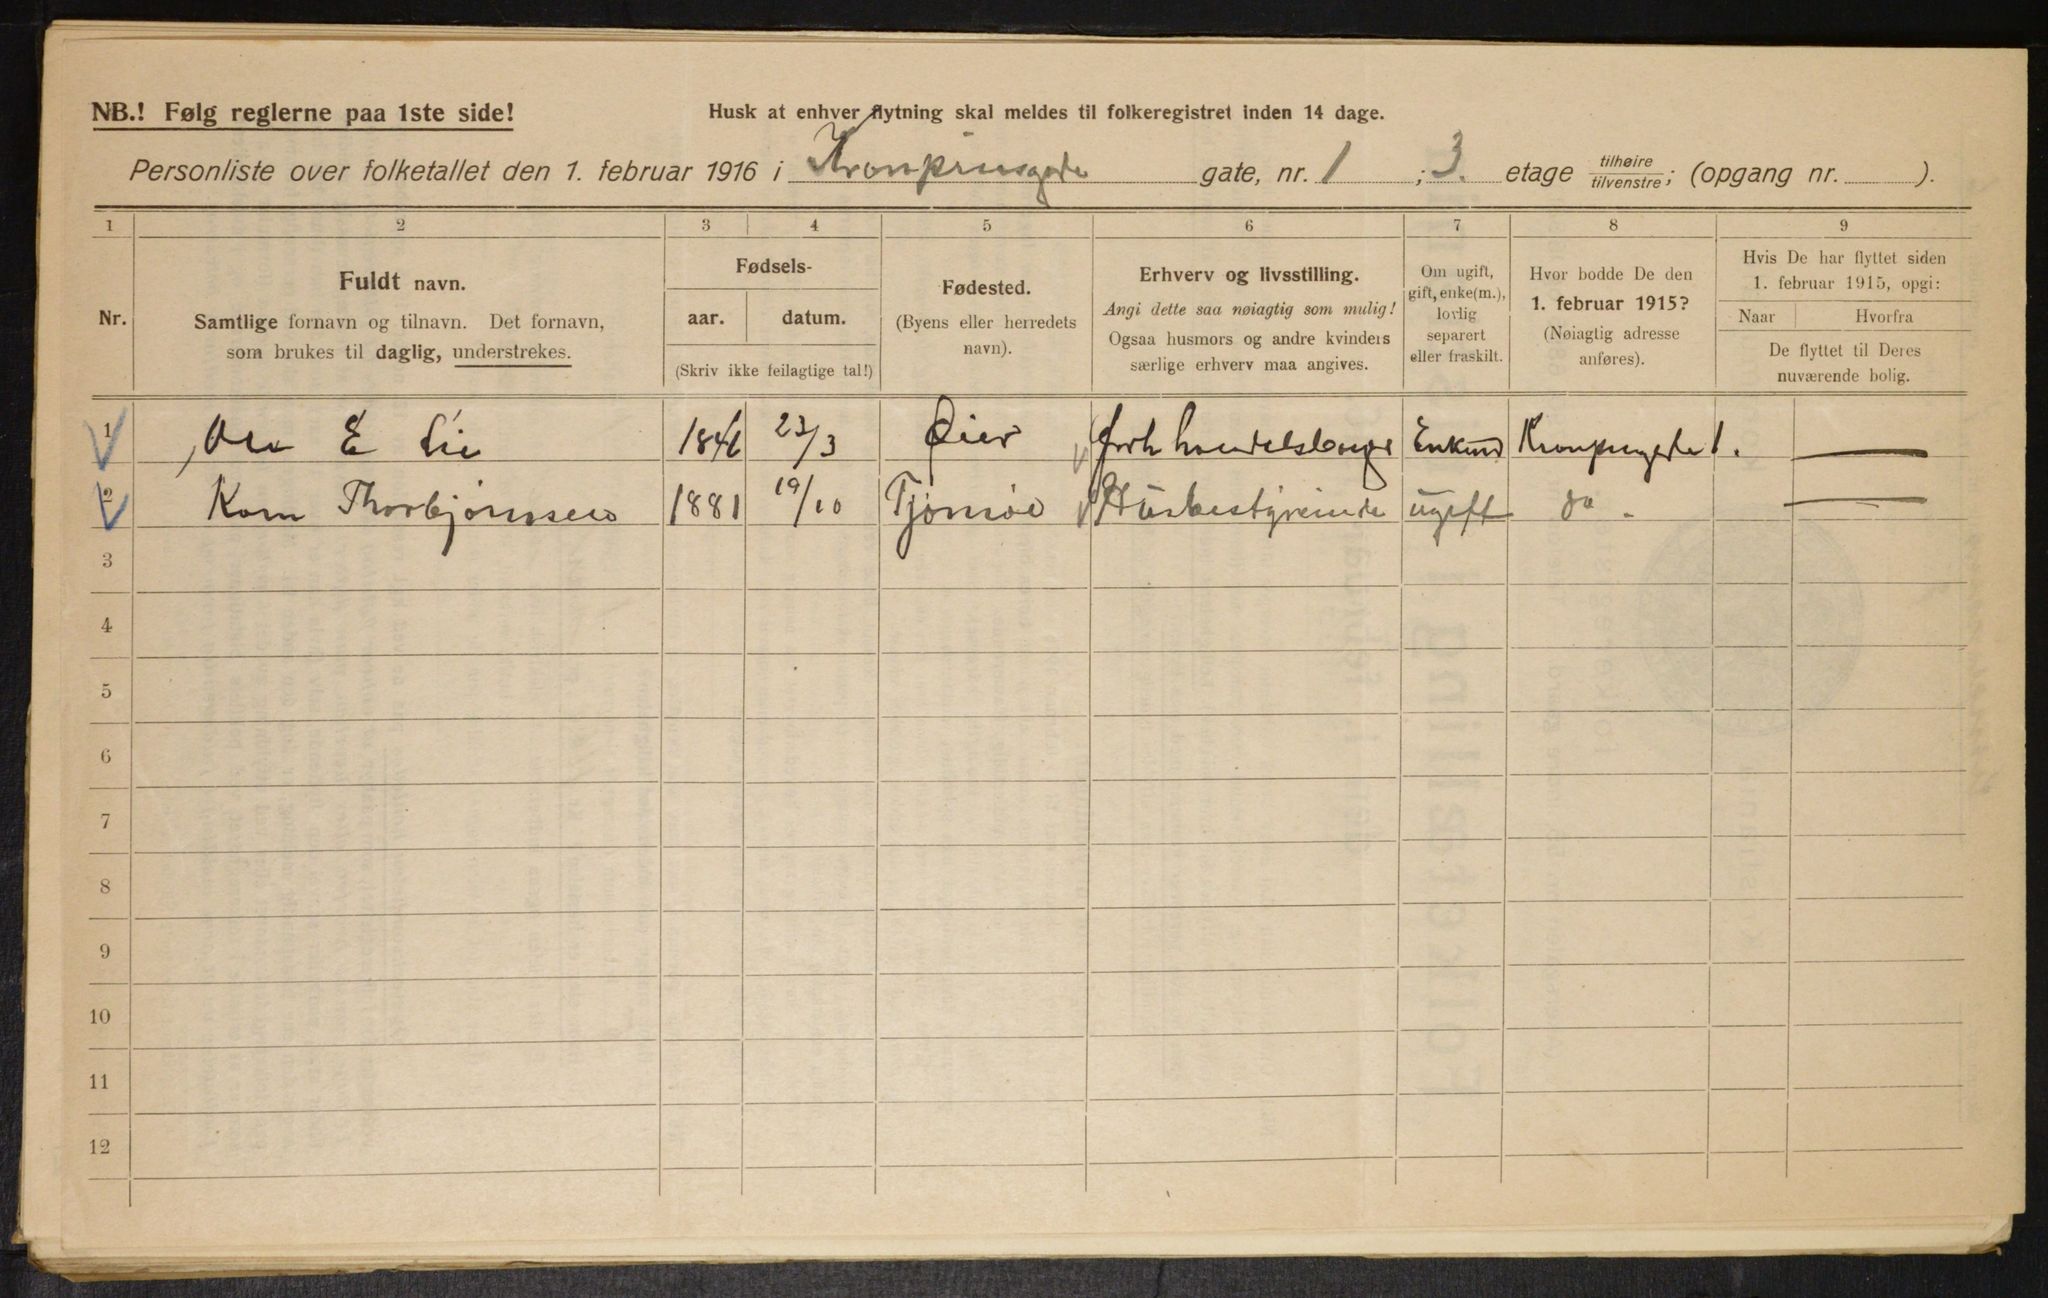 NB.! Følg reglerne paa 1ste side!
Husk at enhver flytning skal meldes til folkeregistret inden 14 dage.
Personliste over folketallet den 1. februar 1916 i Kronprinsgade gate, nr. 1 ; 3. etage tilhøire/tilvenstre; (opgang nr. ).
1 2 3 4 5 6 7 8 9
Nr.
Fuldt navn.
Samtlige fornavn og tilnavn. Det fornavn,
som brukes til daglig, understrekes.
Fødsels-
aar. datum.
(Skriv ikke feilagtige tal!)
Fødested.
(Byens eller herredets
navn).
Erhverv og livsstilling.
Angi dette saa nøiagtig som mulig!
Ogsaa husmors og andre kvinders
særlige erhverv maa angives.
Om ugift,
gift, enke(m.),
lovlig
separert
eller fraskilt.
Hvor bodde De den
1. februar 1915?
(Nøiagtig adresse
anføres).
Hvis De har flyttet siden
1. februar 1915, opgi:
Naar Hvorfra
De flyttet til Deres
nuværende bolig.
1 E Lie 23/3 Øier forh handelsborger Enkem Kronprinsgade 1.
2 Thorbjørnsen 1881 19/10 Tjømø Husbestyrerinde ugift do.
3
4
5
6
7
8
9
10
11
12